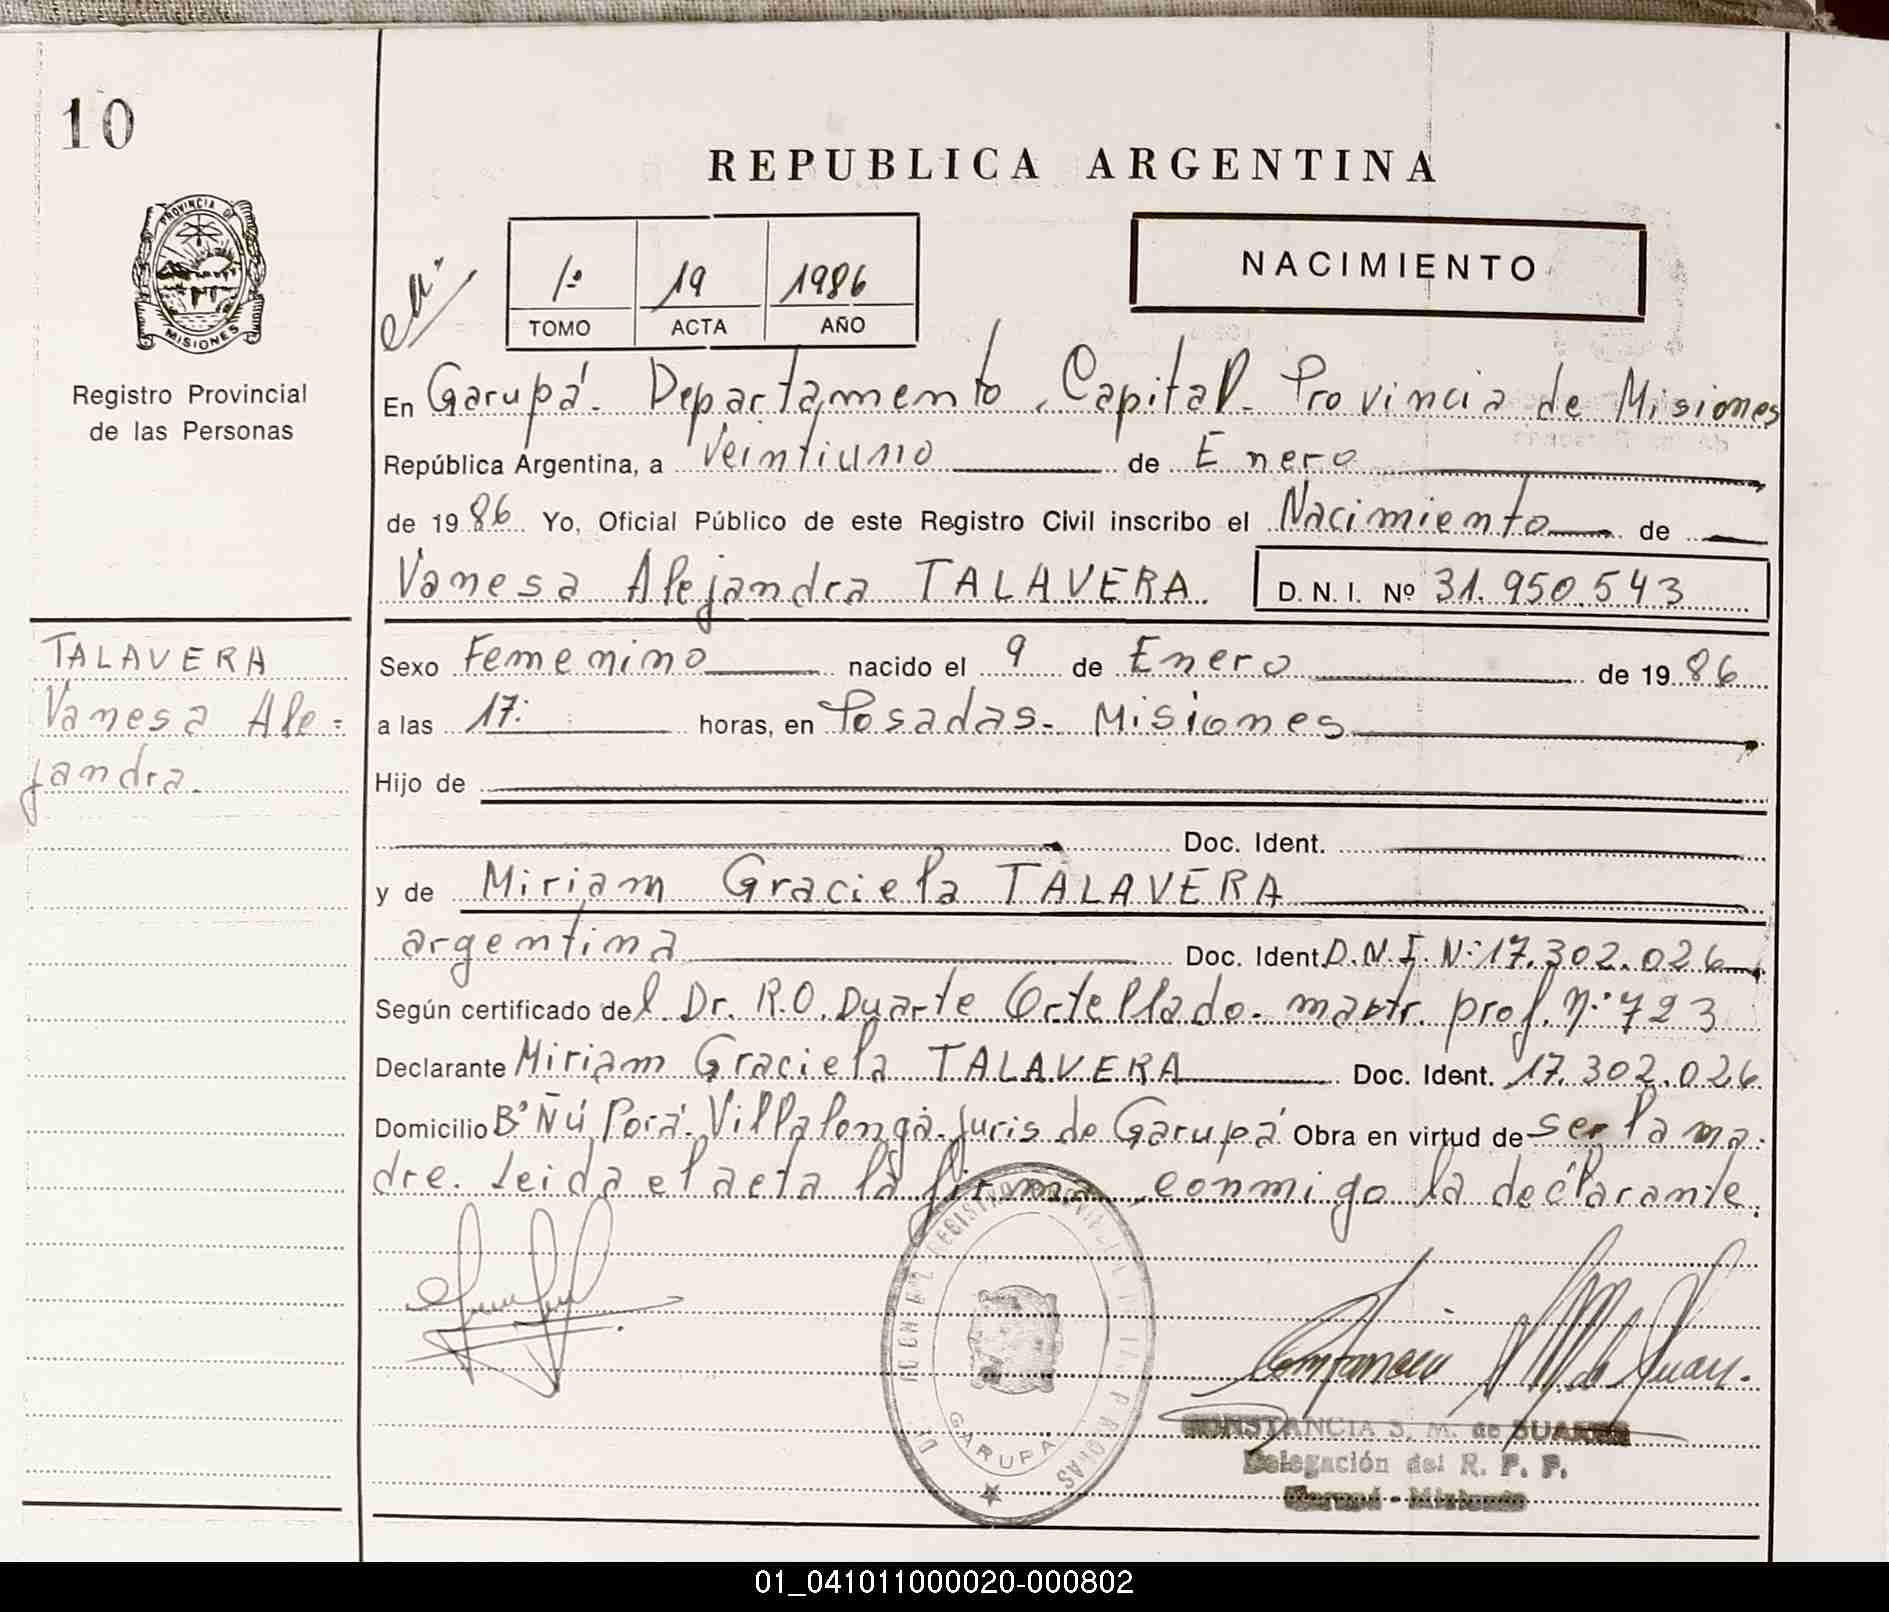 10
REPUBLICA ARGENTINA
PROVINCIA DE
MISIONES
Registro Provincial
de las Personas
1º 19 1986
TOMO ACTA AÑO
NACIMIENTO
En Garupá. Departamento Capital. Provincia de Misiones
República Argentina, a Veintiuno de Enero
de 1986 Yo, Oficial Público de este Registro Civil inscribo el Nacimiento de
Vanesa Alejandra TALAVERA. D. N. I. Nº 31.950.543
TALAVERA
Vanesa Ale=
jandra.
Sexo Femenino nacido el 9 de Enero de 1986
a las 17: horas, en Posadas. Misiones
Hijo de
Doc. Ident.
y de Miriam Graciela TALAVERA
argentina Doc. Ident. D.N.I. Nº 17.302.026
Según certificado del Dr. R.O. Duarte Ortellado. matr. prof. Nº 723
Declarante Miriam Graciela TALAVERA Doc. Ident. 17.302.026
Domicilio Bº Ñú Porá. Villalonga. Juris de Garupá Obra en virtud de ser la ma-
dre. Leida el acta la firma conmigo la declarante.
GARUPA
CONSTANCIA S. M. de SUAREZ
Delegación del R. P. P.
Garupá - Misiones
01_041011000020-000802